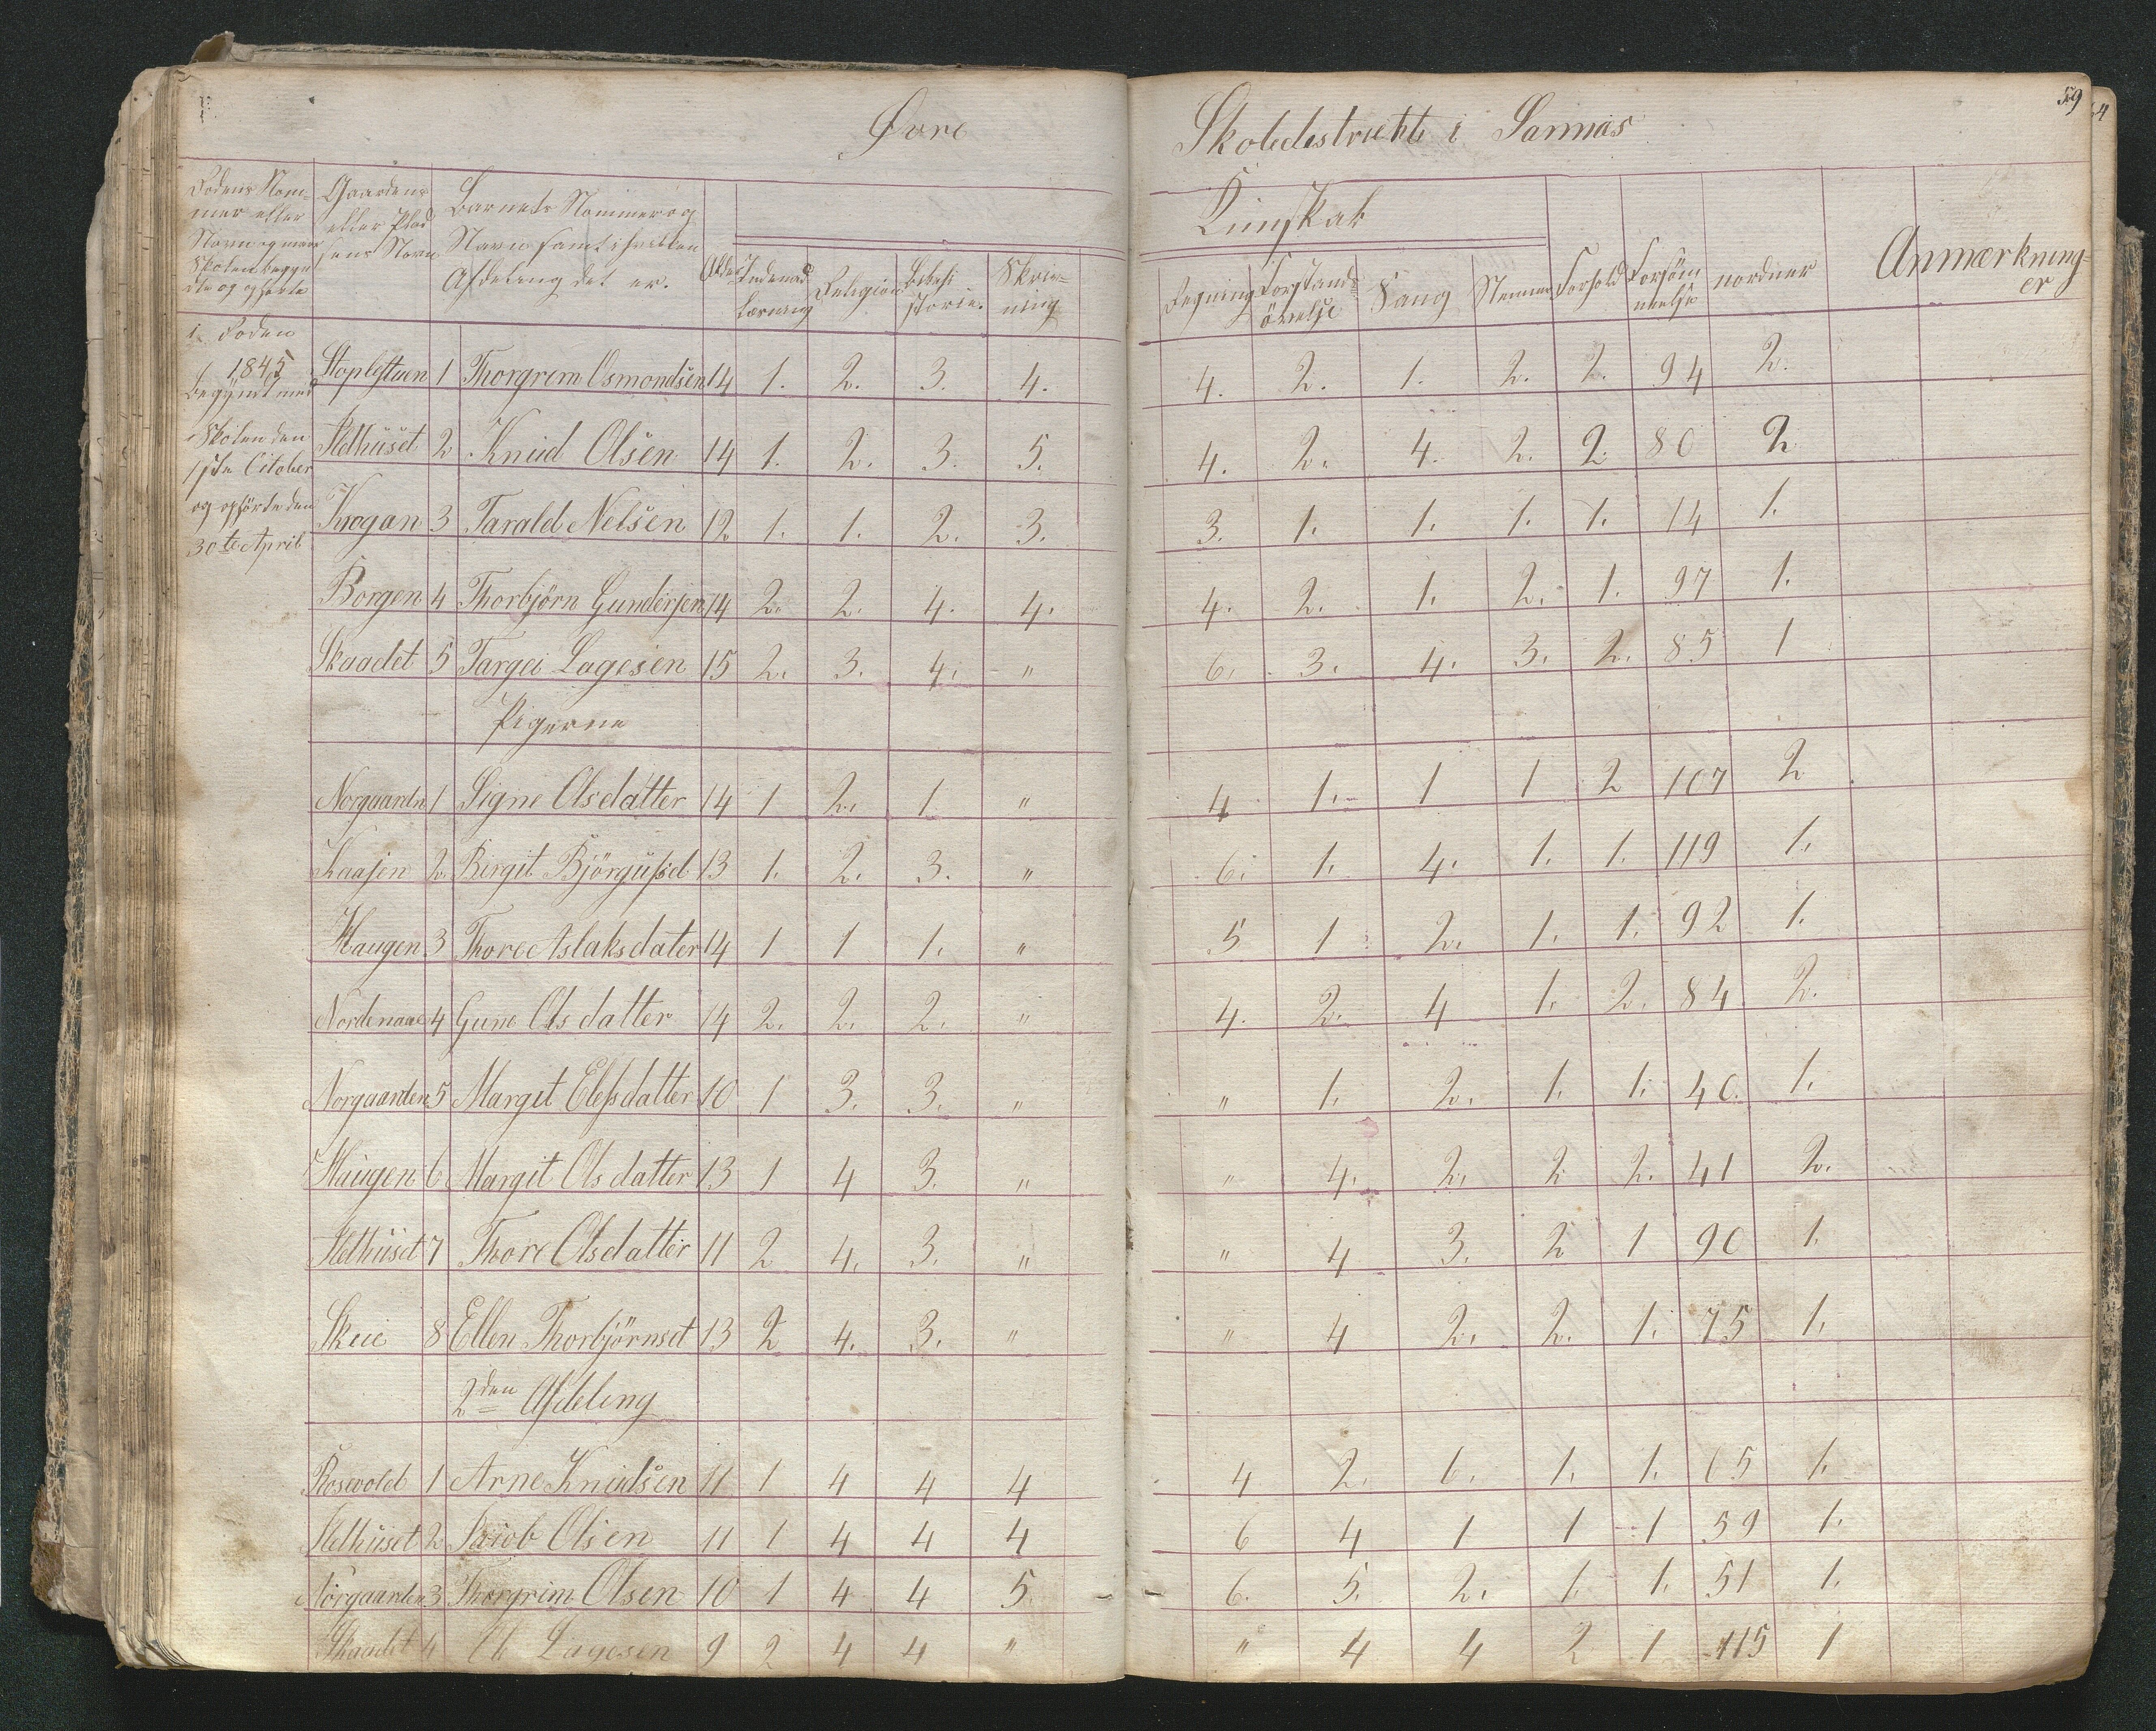 Øvre Skoledestrickt i Sannas
59
Rodens Nom-
mer eller
Navn og naar
Skolen begyn
dte og ophörte
Gaardens
eller Plad
sens Navn
Barnets Nommer og
Navn samt i hvilken
Afdeling det er.
Alder
Indenad
læsning
Religion
Skriv-
ning
Kunskab
Regning
Forstands
övelse
Sang
Nemme
Forhold
Forsöm
melse
Anmærkning-
er
1. Roden
1845
begÿnt med
Skolen den
1ste October
og ophörte den
30te April
1 Thorgrim Osmondsen 14 1. 2. 3. 4. 4. 2. 1. 2. 2. 94 2.
Klelhüset 2 Knüd Olsen 14 1. 2. 3. 5. 4. 2. 4. 2. 2. 80 2
Krogan 3 Tarald Nelsen 12 1. 1. 2. 3. 3. 1. 1. 1. 1. 14 1.
Borgen 4 Thorbjörn Gundersen 14 2. 2. 4. 4. 4. 2. 1. 2. 1. 97 1.
Skaadet 5 Targei Lagesen 15 2. 3. 4. " 6. 3. 4. 3. 2. 85 1
Pigerne
Norgaarden 1 Signe Olsdatter 14 1 2. 1. " 4 1. 1 1 2 107 2
Kaasen 2 Birgit Björgüfsd 13 1. 2. 3. " 6. 1. 4. 1. 1. 119 1.
Haugen 3 Thore Aslaksdater 14 1 1 1. " 5 1 2. 1. 1. 92 1.
Nordenaae 4 Gune Olsdatter 14 2. 2. 2. " 4. 2. 4 1. 2. 84 2.
Norgaarden 5 Margit Elefsdatter 10 1 3. 3. " " 1. 2. 1. 1. 40. 1.
Haugen 6 Margit Olsdatter 13 1 4 3. " " 4. 2. 2 2. 41 2.
Klelhüset 7 Thore Olsdatter 11 2 4. 3. " " 4 3. 2 1 90 1.
Skeie 8 Ellen Thorbjörnsd 13 2 4. 3. " " 4 2. 2. 1. 75 1.
2den Afdeling
Rosevold 1 Arne Knüdsen 11 1 4 4 4 4 2. 1. 1. 1. 65 1.
Klelhüset 2 Jacob Olsen 11 1 4 4 4 6 4 1 1 1 59 1.
Norgaarden 3 Thorgrim Olsen 10 1 4 4 5. 6. 5. 2. 1. 1. 51 1.
Skaadet 4 Ole Lagesen 9 2 4 4 " " 4 4 2 1 115 1